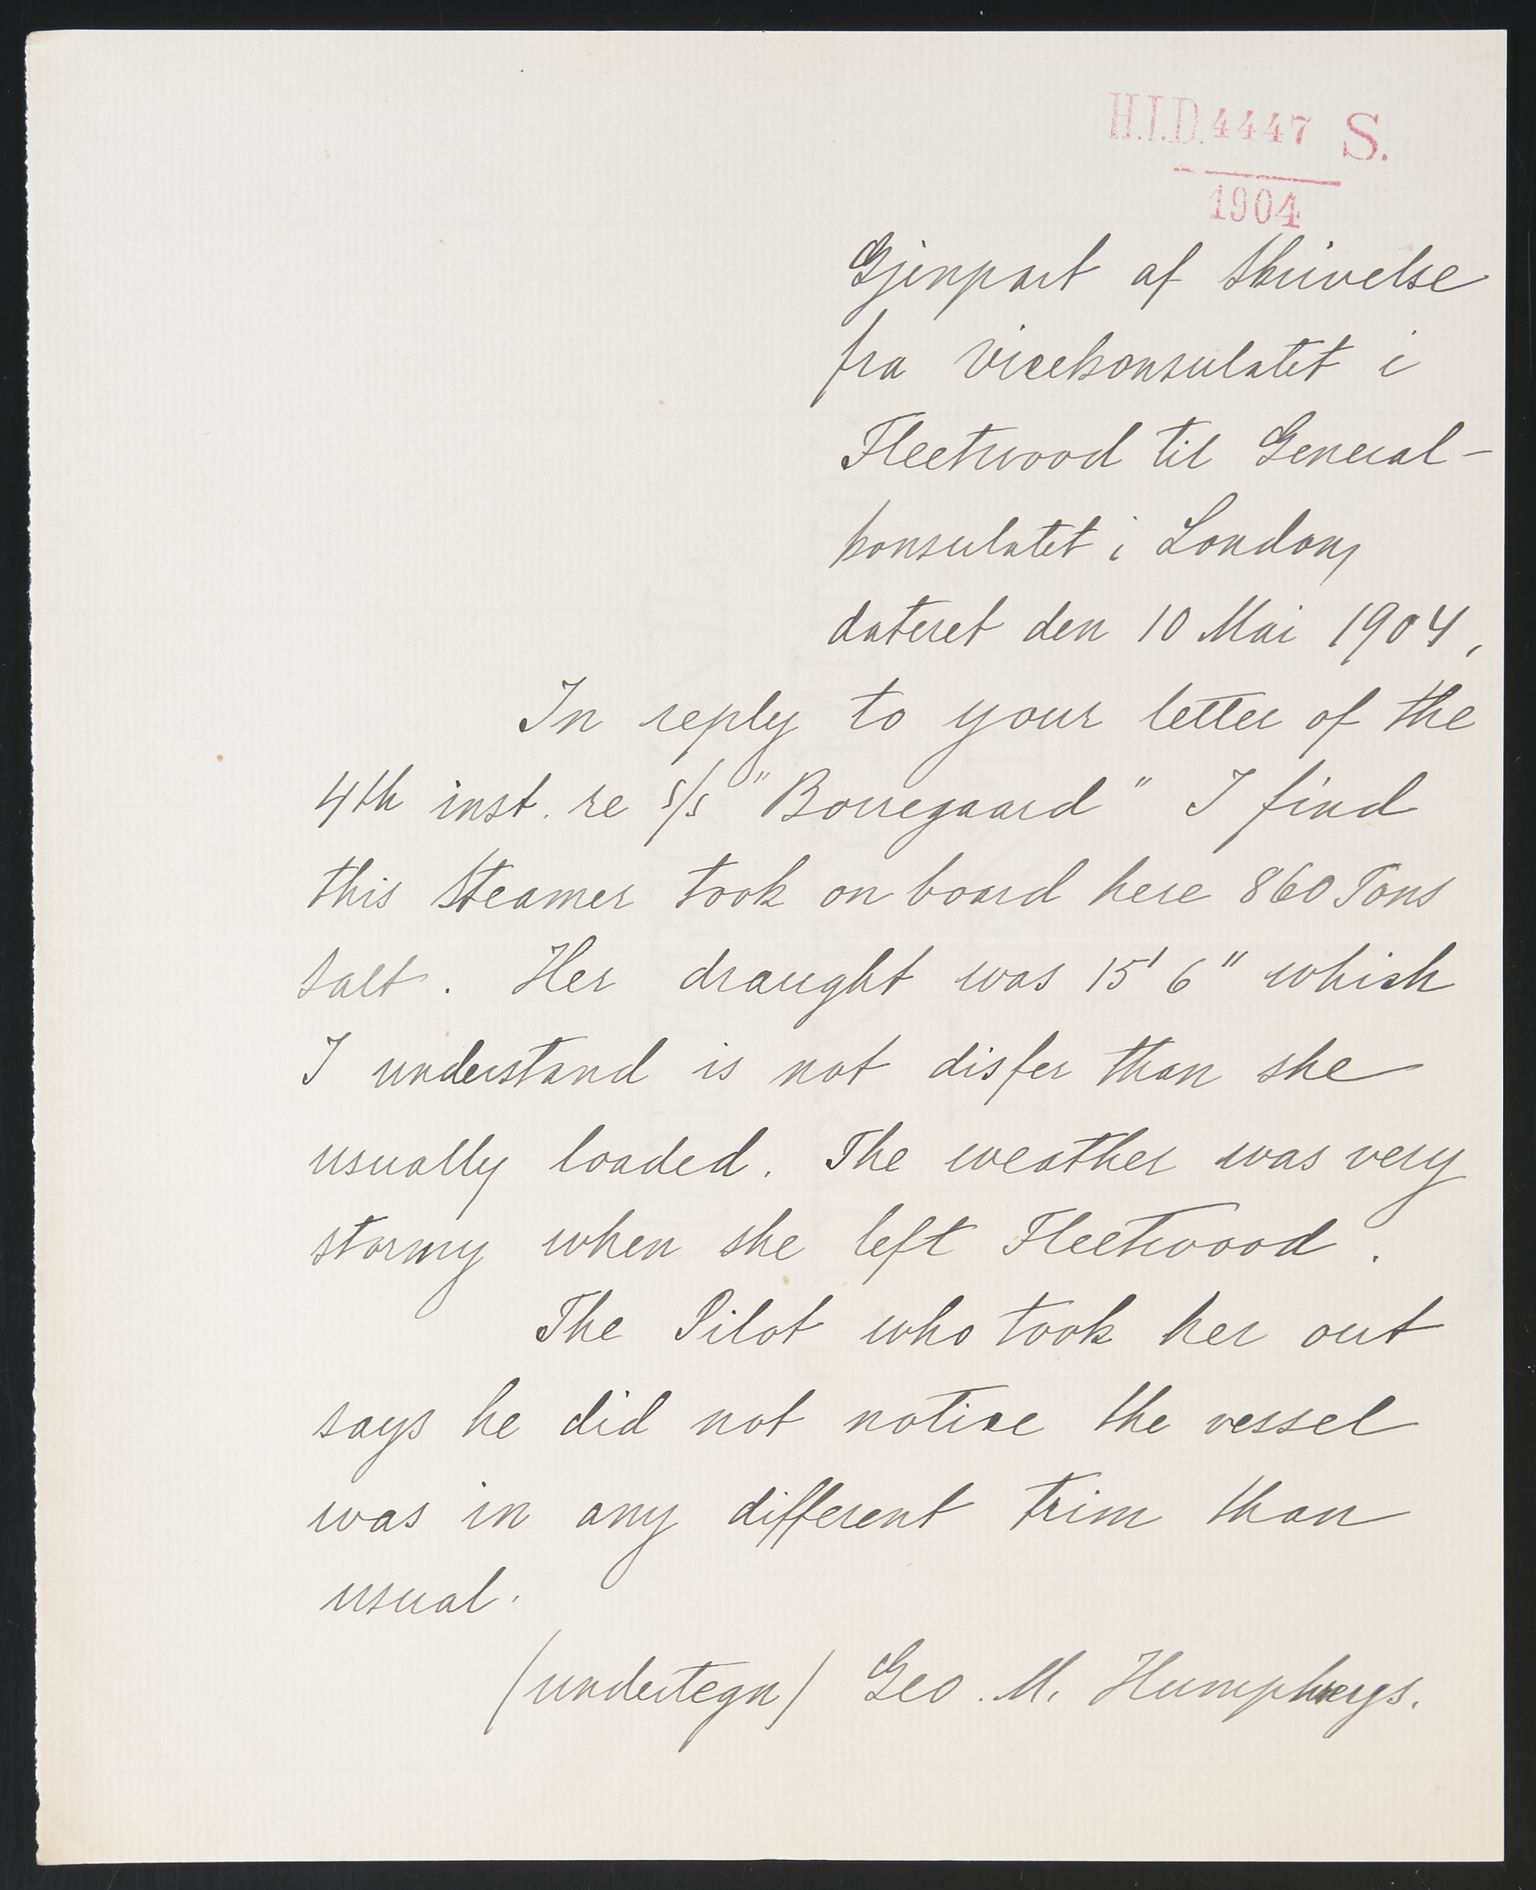 H.I.D. 4447 S.
1904
Gjenpart af skrivelse
fra vicekonsulatet i
Fleetwood til General-
konsulatet i London,
dateret den 10 Mai 1904,
In reply to your letter of the
4th inst. re s/s "Borregaard" I find
this Steamer took on board here 860 Tons
salt. Her draught was 15' 6" which
I understand is not disfer than she
usually loaded. The weather was very
stormy when she left Fleetwood.
The Pilot who took her out
says he did not notice the vessel
was in any different trim than
usual.
(undertegn) Geo. M. Humphreys.